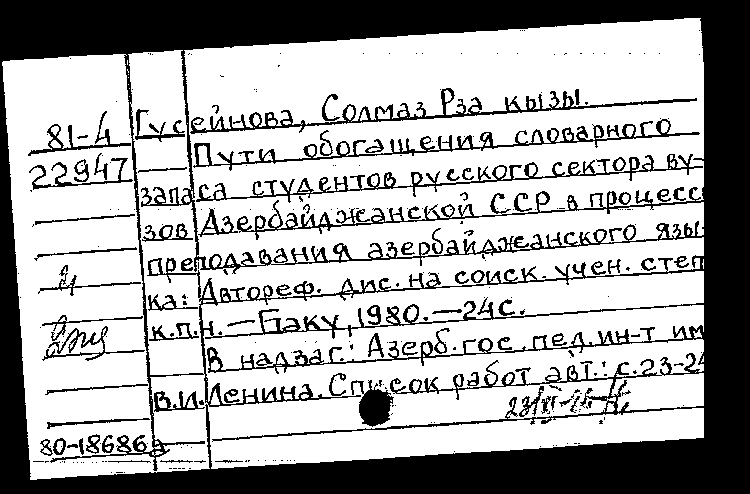 81-4
22947
Гусейнова, Солмаз Рза кызы.
Пути обогащения словарного
запаса студентов русского сектора ву-
зов Азербайджанской ССР в процесс
преподавания азербайджанского язы-
ка: Автореф. дис. на соиск. учен. степ
к.п.н. — Баку, 1980. — 24с.
В надзаг.: Азерб. гос. пед. ин-т им
В.И. Ленина. Список работ авт.: с. 23-24
80-18686а